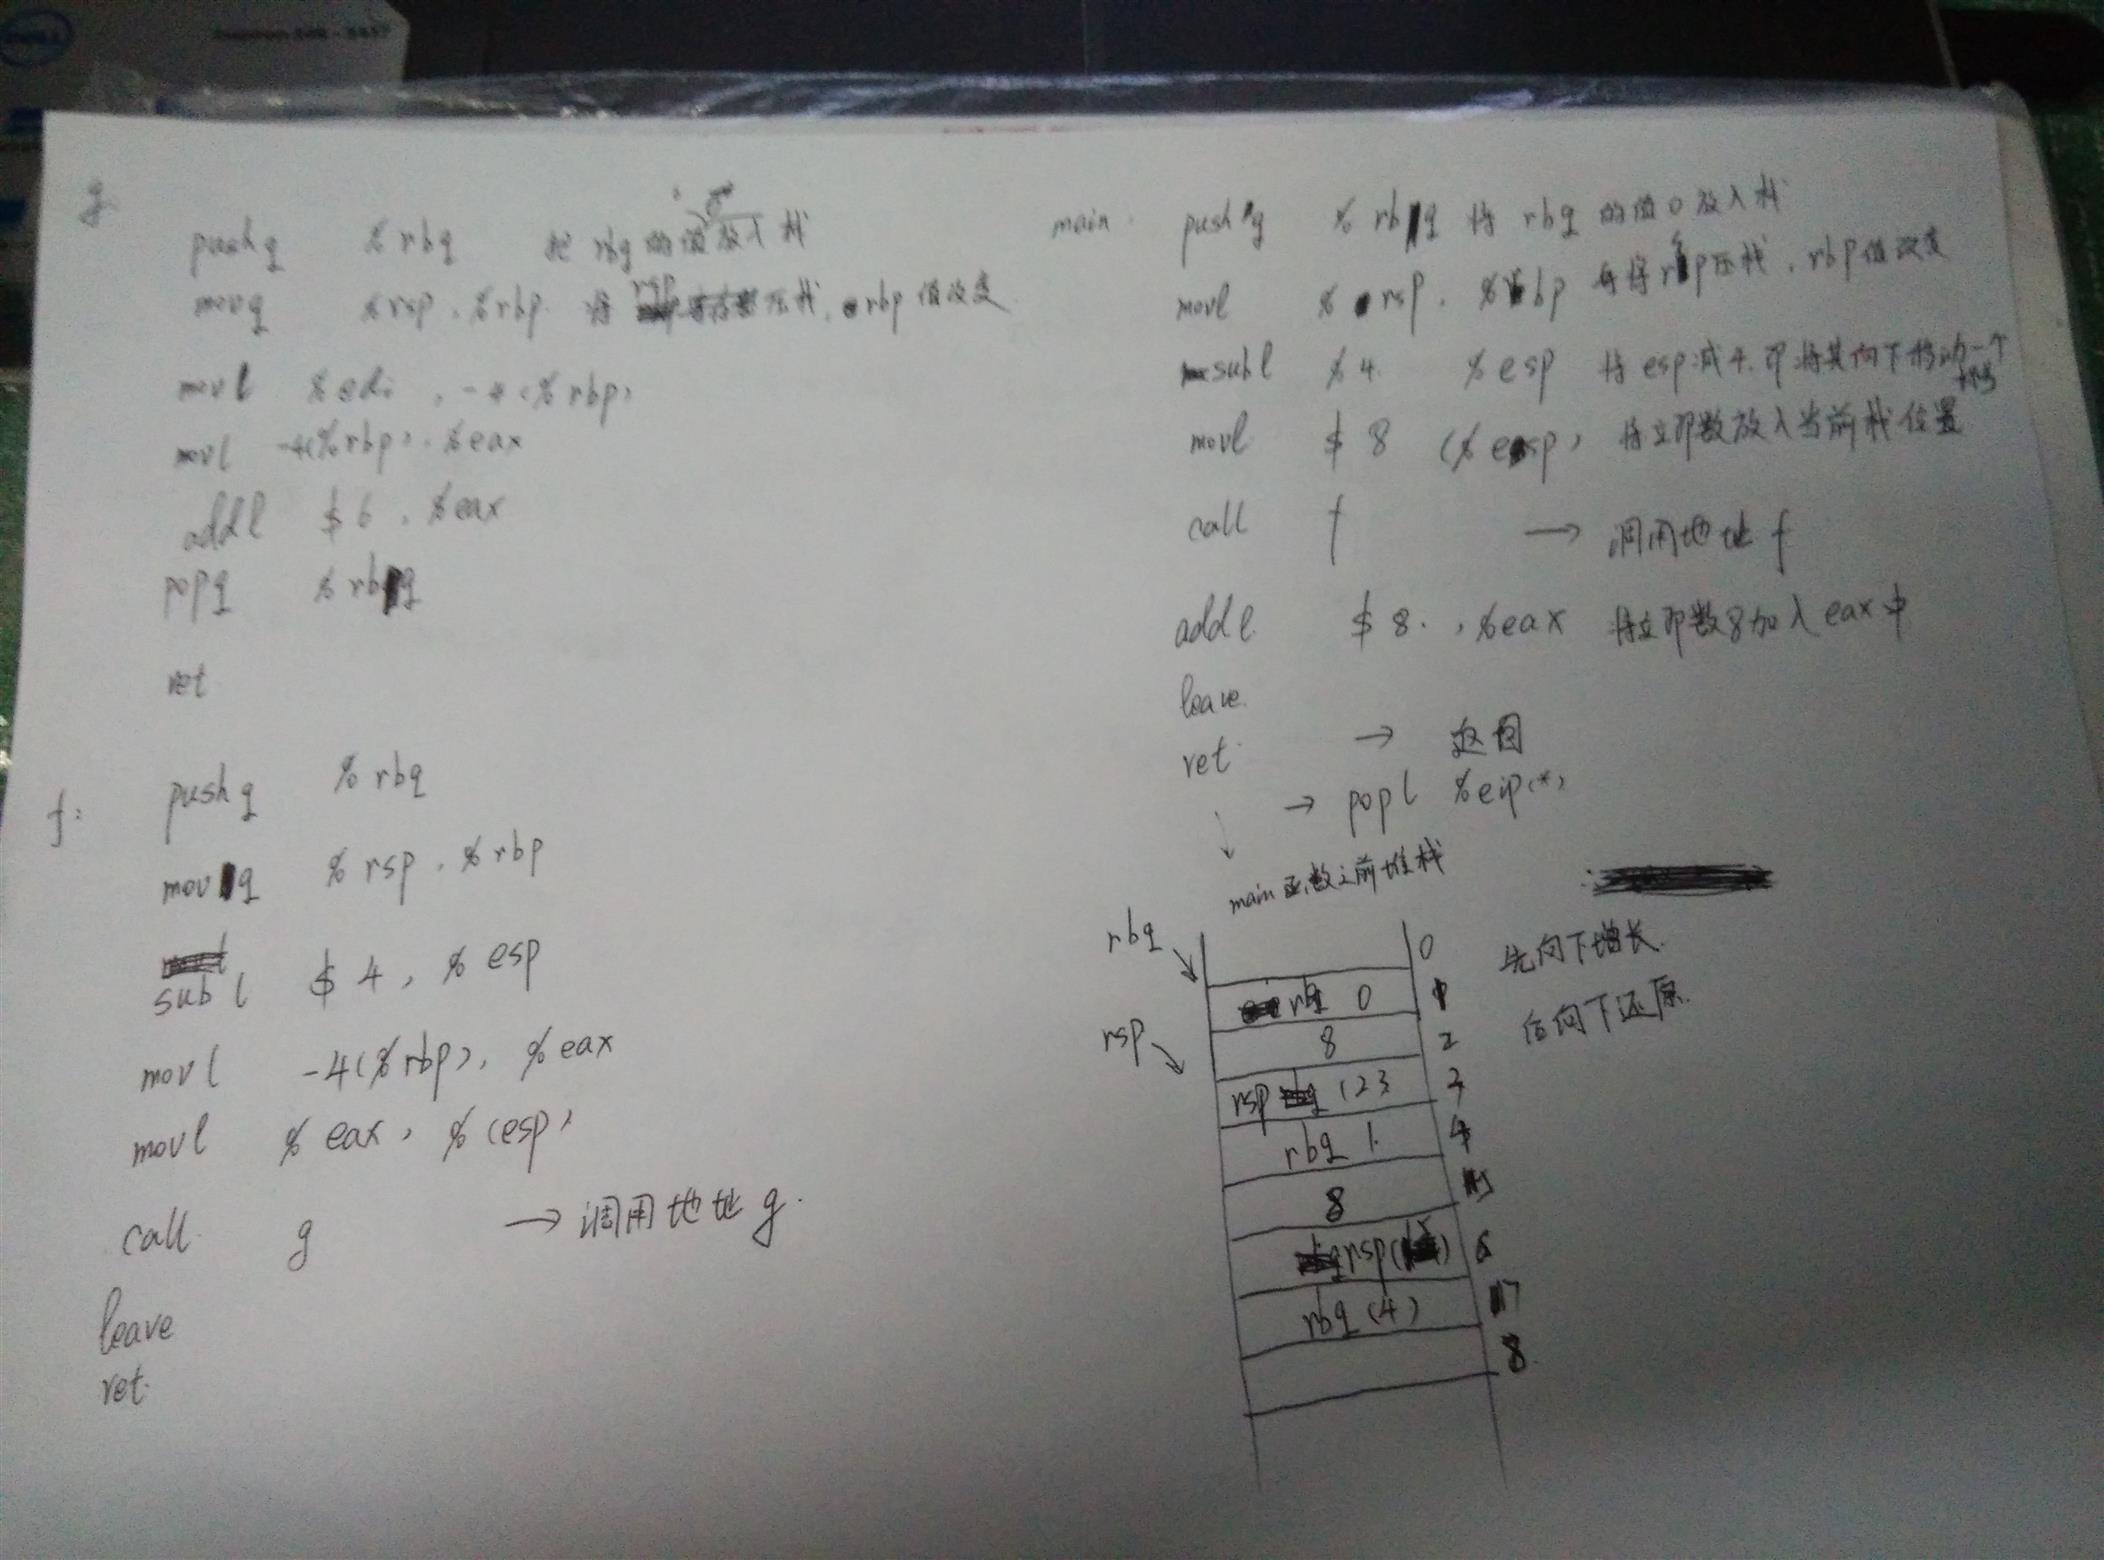 g
pushq %rbq 把rbq的值放入栈
movq %rsp, %rbp. 将rsp压栈, rbp值改变
movl %edi, -4(%rbp)
movl -4(%rbp), %eax
addl $6, %eax
popq %rbq
ret
f:
pushq %rbq
movq %rsp, %rbp
subl $4, %esp
movl -4(%rbp), %eax
movl %eax, %(esp)
call g → 调用地址g.
leave
ret.
main: pushq %rbq 将rbq的值0放入栈
movl %rsp, %rbp 再将rsp压栈, rbp值改变
subl %4. %esp 将esp减4, 即将其向下移动一个
movl $8 (%esp) 将立即数放入当前栈位置
call f → 调用地址f
addl $8., %eax 将立即数8加入eax中
leave.
ret. → 返回
→ popl %eip(*)
main函数之前堆栈
rbq 0
rbq 0 1
rsp 8 2
rsp 123 3
rbq 1. 4
8 5
rsp( ) 6
rbq (4) 7
8.
先向下增长.
后向下还原.